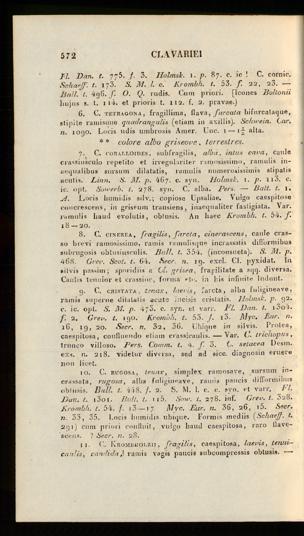 572 CLAVARIEI
Fl. Dan. t. 775. f. 3. Holmsk. 1. p. 87. c. ic! C. cornic.
Schaeff. t. 173. S. M. l. c. Krombh. t. 53. f. 22. 23. —
Bull. t. 496. f. O. Q. rudis. Cum priori. [Icones Boltonii
hujus s. t. 114. et prioris t. 112. f. 2. pravae.)
6. C. TETRAGONA, fragillima, flava, furcata bifurcataque,
stipite ramisque quadrangulis (etiam in axillis). Schwein. Car.
n. 1090. Locis udis umbrosis Amer. Unc. 1—1½ alta.
** colore albo griseove, terrestres.
7. C. CORALLOIDES, subfragilis, alba, intus cava, caule
crassiusculo repetito et irregulariter ramosissimo, ramulis in-
aequalibus sursum dilatatis, ramulis numerosissimis stipatis
acutis. Linn. S. M. p. 467. c. syn. Holmsk. 1. p. 113. c.
ic. opt. Sowerb. t. 278. syn. C. alba. Pers. — Batt. t. 1.
A. Locis humilis silv. copiose Upsaliae. Vulgo caespitose
concrescens, in griseum transiens, inaequaliter fastigiata. Var.
ramulis haud evolutis, obtusis. An haec Krombh. t. 54. f.
18—20.
8. C. CINEREA, fragilis, farcta, cinerascens, caule cras-
so brevi ramosissimo, ramis ramulisque incrassatis difformibus
subrugosis obtusiusculis. Bull. t. 354. (inconsueta). S. M. p.
468. Grev. Scot. t. 64. Secr. n. 19. excl. Cl. pyxidat. In
silvis passim; sporidiis a Cl. grisea, fragilitate a sqq. diversa.
Caulis tenuior et crassior, forma etc. in his infinite ludunt.
9. C. CRISTATA, tenax, laevis, farcta, alba fuligineave,
ramis superne dilatatis acute incisis cristatis. Holmsk. p. 92.
c. ic. opt. S. M. p. 473. c. syn. et varr. Fl. Dan. t. 1304.
f. 2. Grev. t. 190. Krombh. t. 53. f. 13. Myc. Eur. n.
16, 19, 20. Secr. n. 32, 36. Ubique in silvis. Protea,
caespitosa, confluendo etiam exassicaulis. — Var. C. trichopus,
trunco villoso. Pers. Comm. t. 4. f. 3. C. setacea Desm.
exs. n. 218. videtur diversa, sed ad sicc. diagnosin eruere
non licet.
10. C. RUGOSA, tenax, simplex ramosave, sursum in-
crassata, rugosa, alba fuligineave, ramis paucis difformibus
obtusis. Bull. t. 448. f. 2. S. M. l. c. c. syn. et varr. Fl.
Dan. t. 1301. Bolt. t. 115. Sow. t. 278. inf. Grev. t. 328.
Krombh. t. 54. f. 13—17. Myc. Eur. n. 36, 26, 15. Secr.
n. 33, 35. Locis humidis ubique. Formis mediis (Schaeff. t.
291) cum priori confluit, vulgo haud caespitosa, raro flave-
scens. ? Secr. n. 28.
11. C. KROMBHOLZII, fragilis, caespitosa, laevis, tenui-
caulis, candida, ramis vagis paucis subcompressis obtusis. —